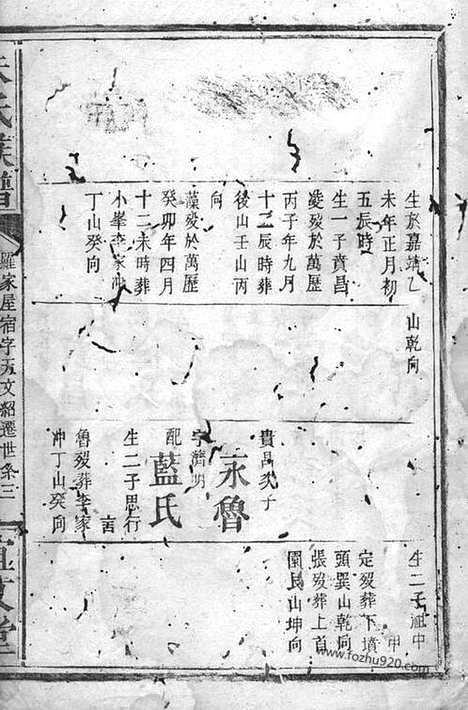 生於嘉靖乙
未年正月初
五辰時
生一子貴昌
凌歿於萬歷
丙子年九月
十二辰時葬
後山壬山丙
向
藻歿於萬歷
癸卯年四月
十二未時葬
小峯李家冲
丁山癸向
山乾向
貴昌次子
永魯
字濟明
配藍氏
生二子思行
言
魯歿葬李家
冲丁山癸向
生二子祖中
甲
定歿葬下墳
頭巽山乾向
張歿葬上首
園艮山坤向
氏族譜
羅家屋宿字
文紹遷世系三
堂
www.fozhu920.com